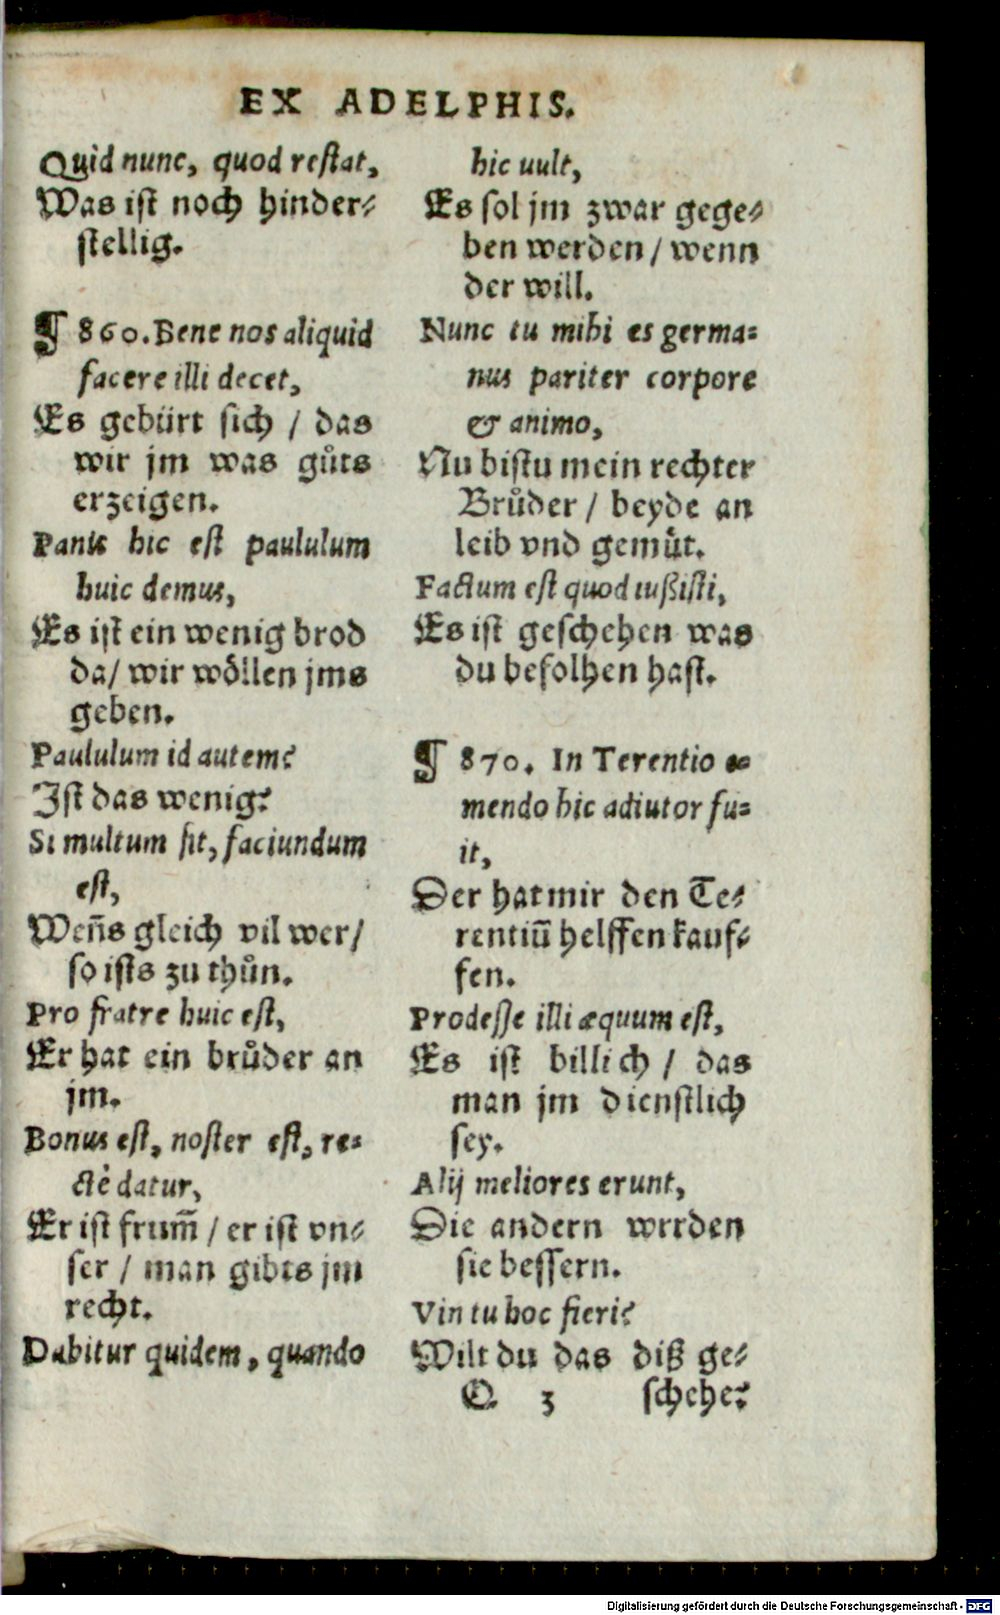 EX ADELPHIS.
Quid nunc, quod restat,
Was ist noch hinder-
stellig.
¶ 860. Bene nos aliquid
facere illi decet,
Es gebürt sich / das
wir jm was gůts
erzeigen.
Panis hic est paululum
huic demus,
Es ist ein wenig brod
da / wir wöllen jms
geben.
Paululum id autem?
Ist das wenig?
Si multum sit, faciundum
est,
Weñs gleich vil wer /
so ists zu thůn.
Pro fratre huic est,
Er hat ein brůder an
jm.
Bonus est, noster est, re-
ctè datur,
Er ist frum̃ / er ist vn-
ser / man gibts jm
recht.
Dabitur quidem, quando
hic uult,
Es sol jm zwar gege-
ben werden / wenn
der will.
Nunc tu mihi es germa-
nus pariter corpore
& animo,
Nu bistu mein rechter
Brůder / beyde an
leib vnd gemüt.
Factum est quod iußisti,
Es ist geschehen was
du befolhen hast.
¶ 870. In Terentio e-
mendo hic adiutor fu-
it,
Der hat mir den Te-
rentiū helffen kauf-
fen.
Prodesse illi æquum est,
Es ist billich / das
man jm dienstlich
sey.
Alij meliores erunt,
Die andern wrrden
sie bessern.
Vin tu hoc fieri?
Wilt du das diß ge-
O 3 schehe?
Digitalisierung gefördert durch die Deutsche Forschungsgemeinschaft - DFG